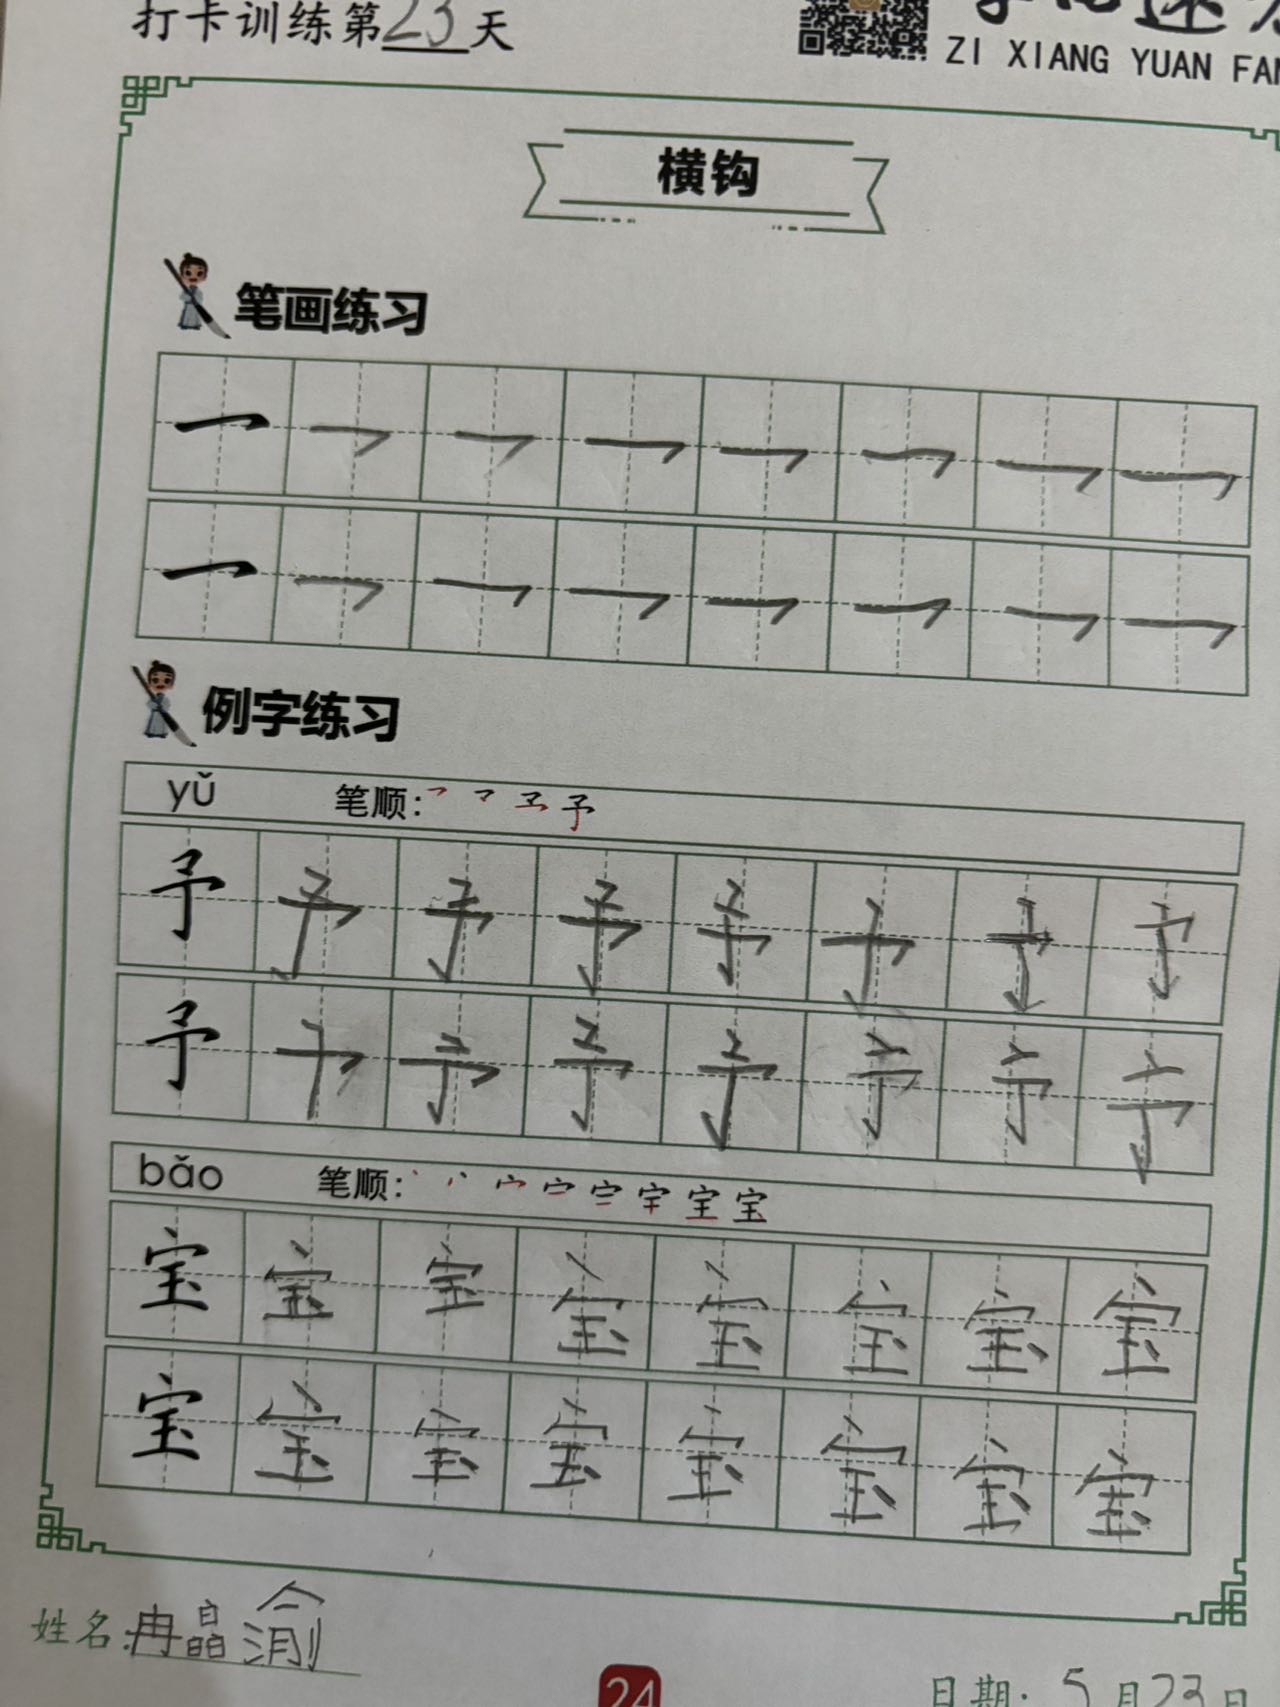 打卡训练第23天
ZI XIANG YUAN FAN
横钩
笔画练习
例字练习
yǔ 笔顺:
予 予 予 予 予 予 予 予
予 予 予 予 予 予 予 予
bǎo 笔顺: 宝
宝 宝 宝 宝 宝 宝 宝 宝
宝 宝 宝 宝 宝 宝 宝 宝
姓名:冉晶渝
24
日期: 5月23日